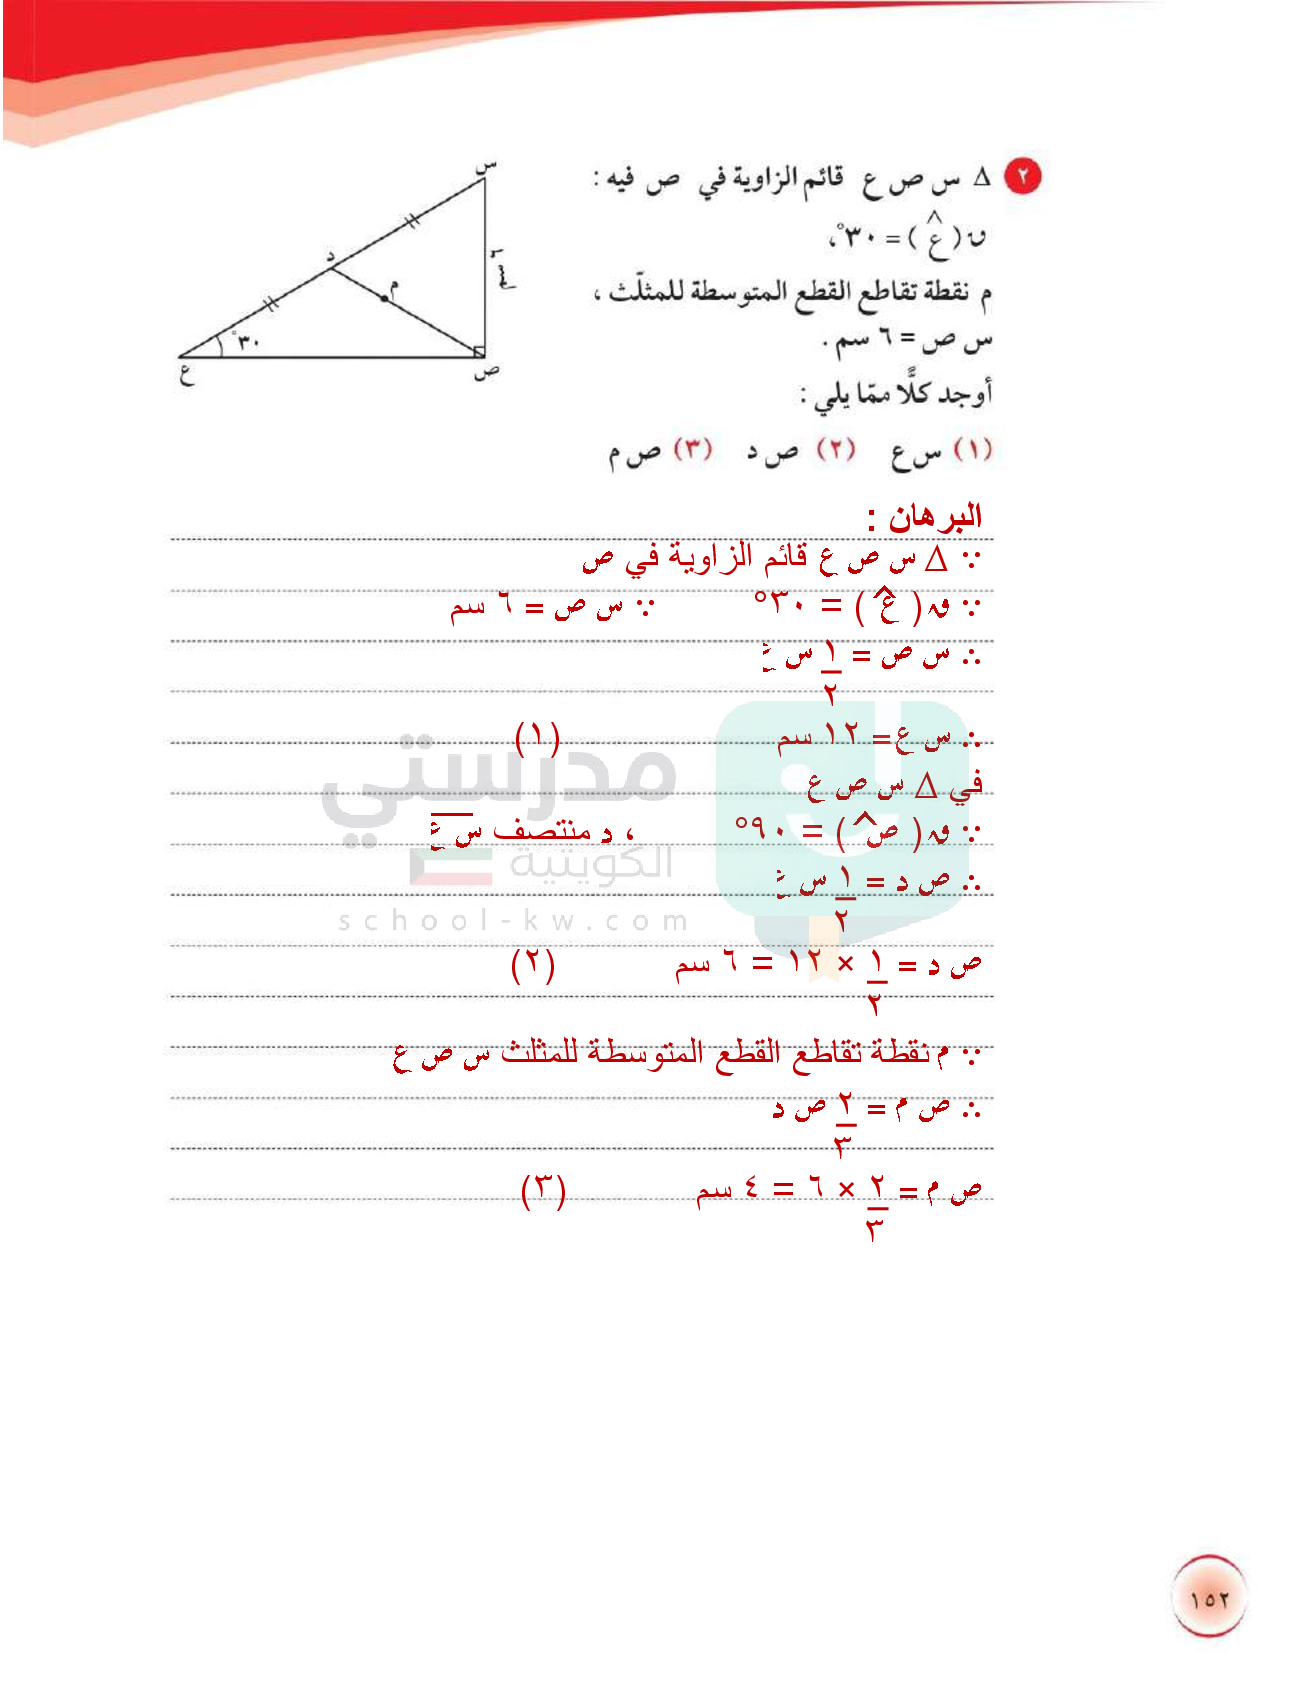 ٢ Δ س ص ع قائم الزاوية في ص فيه :
ق(ع^) = ٣٠°،
م نقطة تقاطع القطع المتوسطة للمثلّث ،
س ص = ٦ سم .
أوجد كلًّا ممّا يلي :
(١) س ع (٢) ص د (٣) ص م
س
٦ سم
د
م
٣٠°
ع
ص
البرهان :
∵ Δ س ص ع قائم الزاوية في ص
∵ ق( ع^ ) = ٣٠° ∵ س ص = ٦ سم
∴ س ص = ١/٢ س ع
∴ س ع = ١٢ سم (١)
في Δ س ص ع
∵ ق( ص^ ) = ٩٠° ، د منتصف س ع
∴ ص د = ١/٢ س ع
ص د = ١/٢ × ١٢ = ٦ سم (٢)
∵ م نقطة تقاطع القطع المتوسطة للمثلث س ص ع
∴ ص م = ٢/٣ ص د
ص م = ٢/٣ × ٦ = ٤ سم (٣)
مدرستي
الكويتية
school-kw.com
١٥٢